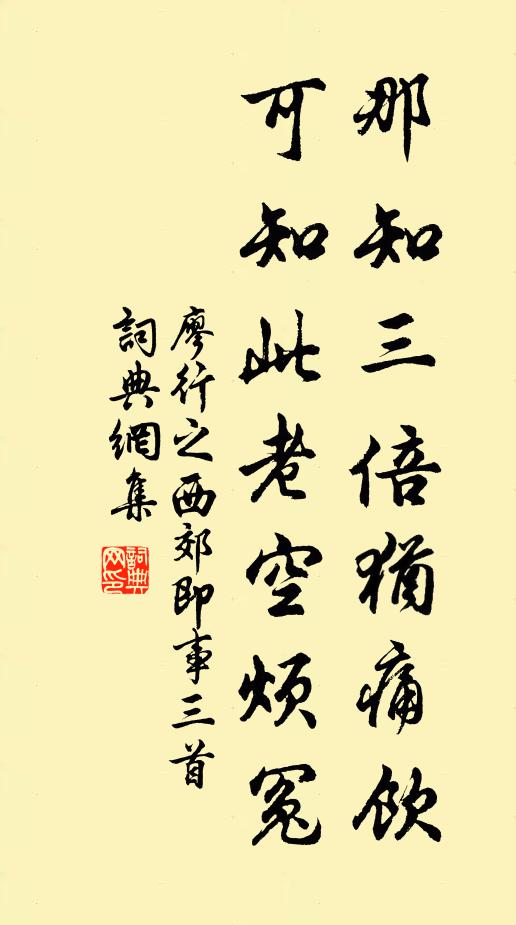 那知三倍猶痛飲
可知此老空煩冤
廖行之西郊即事三首
詞典網集
詞典網印